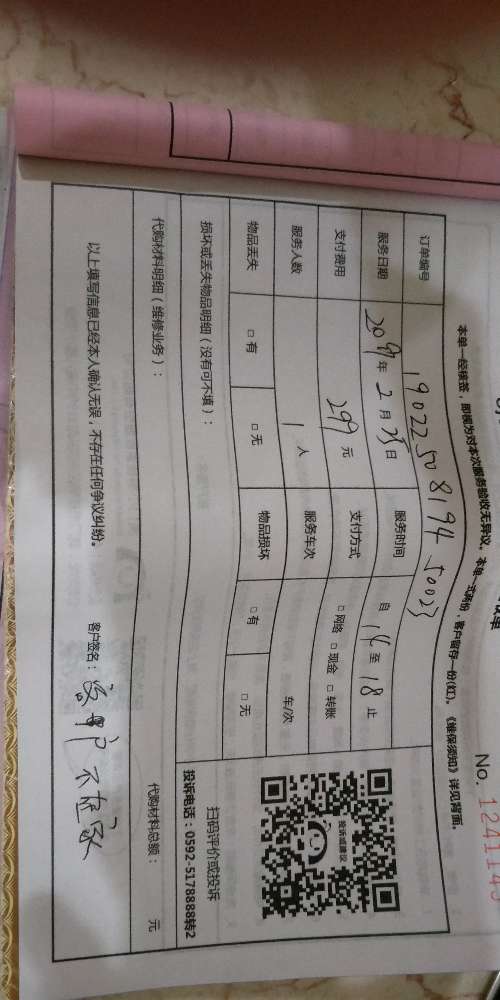 No. 1241145
本单一经核签，即视为对本次服务验收无异议。本单一式两份，客户留存一份(红)。《维保须知》详见背面。
订单编号 19022508194 50023
服务日期 2019年2月25日 服务时间 自 14 至 18 止
支付费用 297元 支付方式 □网络 □现金 □转账
服务人数 1人 服务车次 车/次
物品丢失 □有 □无 物品损坏 □有 □无
扫码评价或投诉
投诉电话：0592-5178888转2
投诉或建议
损坏或丢失物品明细（没有可不填）：
代购材料明细（维修业务）： 代购材料总额： 元
以上填写信息已经本人确认无误，不存在任何争议纠纷。 客户签名：客户不在家